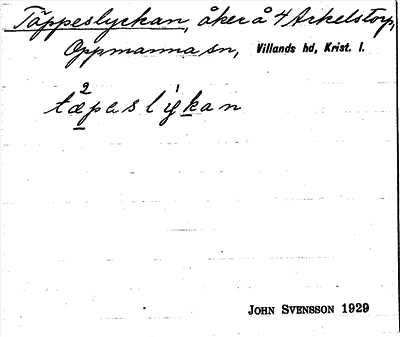 Täppeslyckan, åker å 4 Arkelstorp,
Oppmanna sn, Villands hd, Krist. l.
tæ̱²pəslyḵan
JOHN SVENSSON 1929